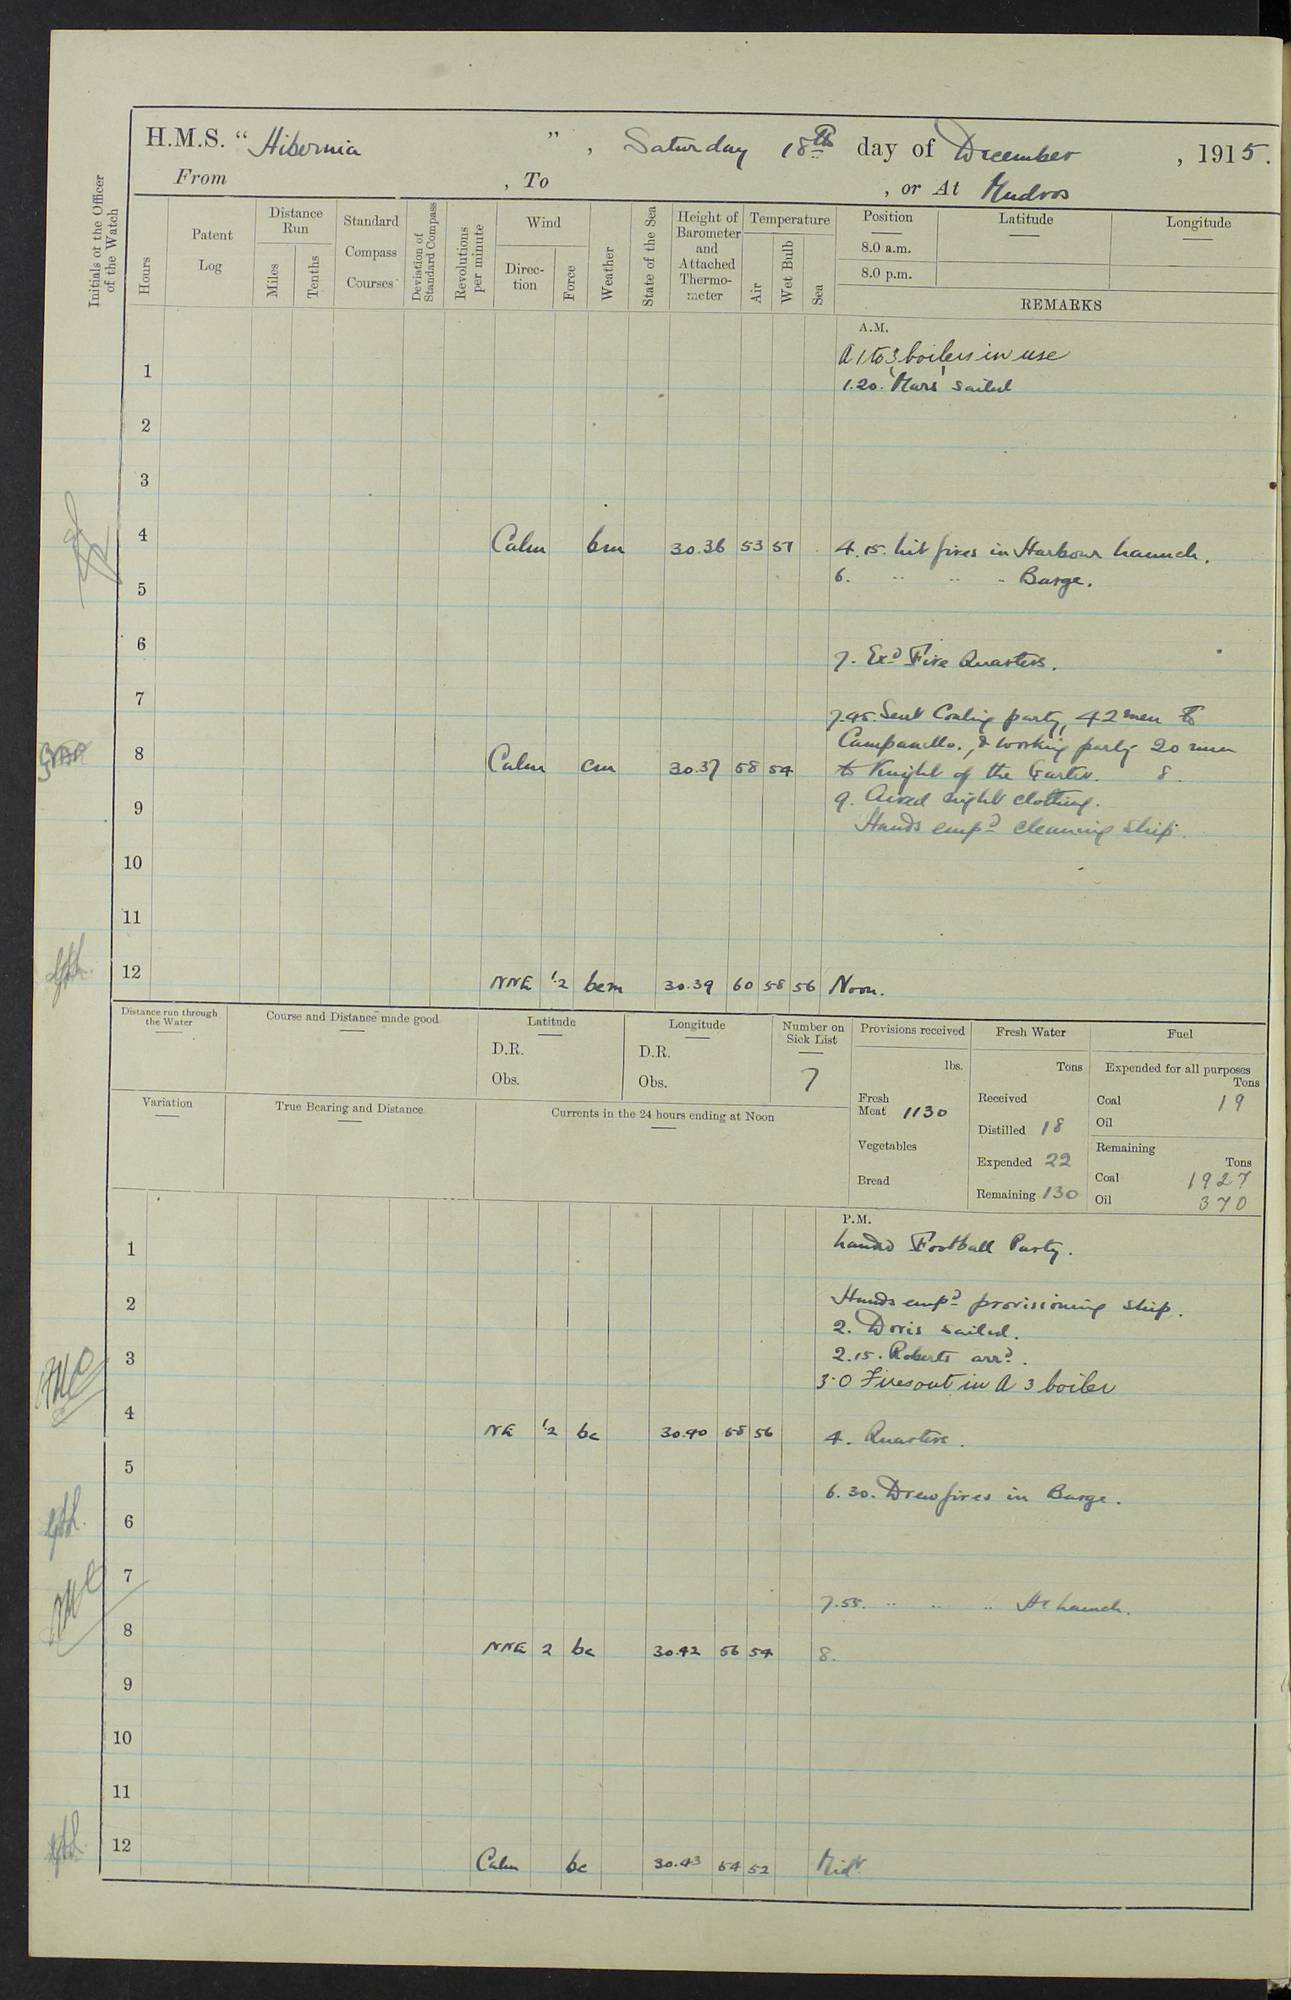 H.M.S. “ Hibernia ” , Saturday 18th day of December , 1915.
From , To , or At Mudros
Initials of the Officer of the Watch
Hours
Patent Log
Distance Run
Miles
Tenths
Standard Compass Courses
Deviation of Standard Compass
Revolutions per minute
Wind
Direc- tion
Force
Weather
State of the Sea
Height of Barometer and Attached Thermo- meter
Temperature
Air
Wet Bulb
Sea
Position
Latitude
Longitude
8.0 a.m.
8.0 p.m.
REMARKS
A.M.
A 1 to 3 boilers in use
1
1.20. 'Mars' sailed
2
3
4 Calm bm 30.36 53 51 4.15. Lit fires in Harbour Launch.
5 6. " " " Barge.
6
7. Exd Fire Quarters.
7
7.45. Sent Coaling party, 42 men to
Campanello., & working party 20 men
8 Calm cm 30.37 58 54 to Knight of the Garter. 8.
9 9. Aired night clothing.
Hands empd cleaning ship.
10
11
12 NNE 1/2 bcm 30.39 60 58 56 Noon.
Distance run through the Water
Course and Distance made good
Latitude
D.R.
Obs.
Longitude
D.R.
Obs.
Number on Sick List
7
Provisions received
lbs.
Fresh Meat 1130
Vegetables
Bread
Fresh Water
Tons
Received
Distilled 18
Expended 22
Remaining 130
Fuel
Expended for all purposes
Tons
Coal 19
Oil
Remaining
Tons
Coal 1927
Oil 370
Variation
True Bearing and Distance
Currents in the 24 hours ending at Noon
P.M.
1 Landed Football Party.
2 Hands empd provisioning ship.
2. Doris sailed.
3 2.15. Roberts arrd.
3.0 Fires out in A 3 boiler
4 NE 1/2 bc 30.40 58 56 4. Quarters.
5
6.30. Drew fires in Barge.
6
7
7.55. " " " Hr Launch.
8 NNE 2 bc 30.42 56 54 8.
9
10
11
12 Calm bc 30.43 54 52 Midt